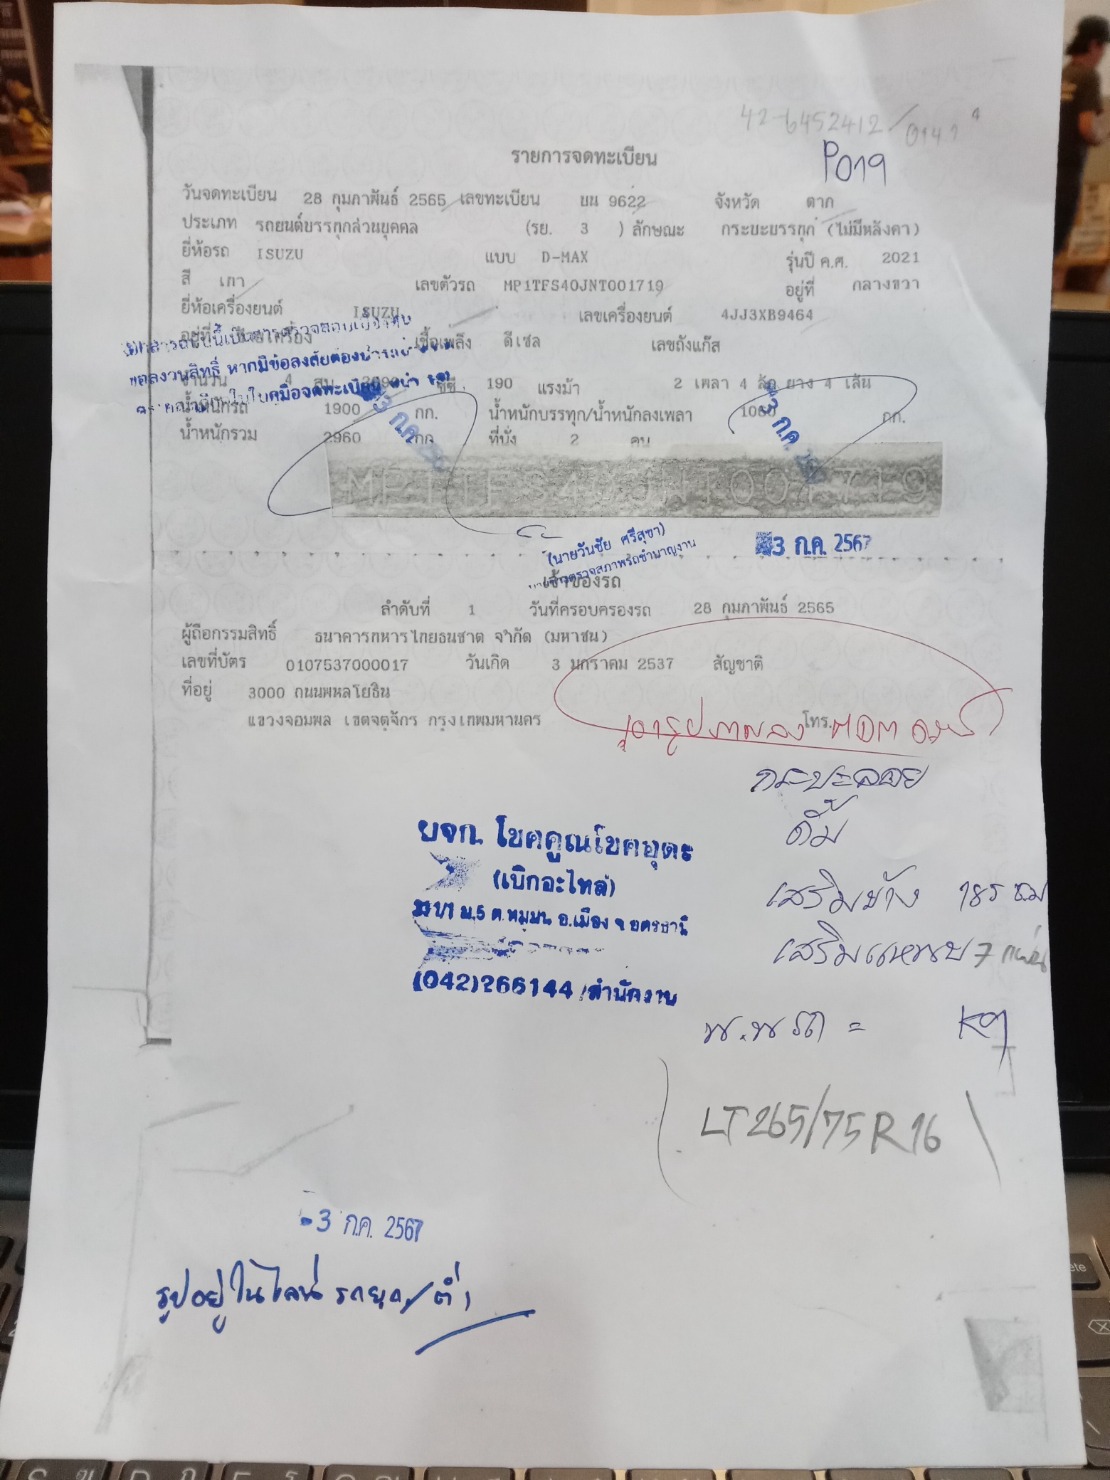 42-6452412/0147
P019
รายการจดทะเบียน
วันจดทะเบียน 28 กุมภาพันธ์ 2565 เลขทะเบียน บน 9622 จังหวัด ตาก
ประเภท รถยนต์บรรทุกส่วนบุคคล (รย. 3 ) ลักษณะ กระบะบรรทุก (ไม่มีหลังคา)
ยี่ห้อรถ ISUZU แบบ D-MAX รุ่นปี ค.ศ. 2021
สี เทา เลขตัวรถ MP1TFS40JNT001719 อยู่ที่ กลางขวา
ยี่ห้อเครื่องยนต์ ISUZU เลขเครื่องยนต์ 4JJ3XB9464
เชื้อเพลิง ดีเซล เลขถังแก๊ส
จำนวน 4 สูบ ซีซี 190 แรงม้า 2 เพลา 4 ล้อ ยาง 4 เส้น
น้ำหนักรถ 1900 กก. น้ำหนักบรรทุก/น้ำหนักลงเพลา 1060 กก.
น้ำหนักรวม 2960 กก. ที่นั่ง 2 คน
MP1TFS40JNT001719
(นายวันชัย ศรีสุขา)
3 ก.ค. 2567
เจ้าของรถ
ลำดับที่ 1 วันที่ครอบครองรถ 28 กุมภาพันธ์ 2565
ผู้ถือกรรมสิทธิ์ ธนาคารทหารไทยธนชาต จำกัด (มหาชน)
เลขที่บัตร 0107537000017 วันเกิด 3 มกราคม 2537 สัญชาติ
ที่อยู่ 3000 ถนนพหลโยธิน
แขวงจอมพล เขตจตุจักร กรุงเทพมหานคร โทร.
กระบะลอย
ดั้ม
เสริมข้าง 185 ซม
เสริมแหนบ 7 แผ่น
ยจก. โชคคูณโชคอุดร
(เบิกอะไหล่)
ม.5 ต.หมูม่น อ.เมือง จ.อุดรธานี
(042)266144 /สำนักงาน
น.น รถ = Kg
LT 265/75R16
-3 ก.ค. 2567
รูปอยู่ในไลน์